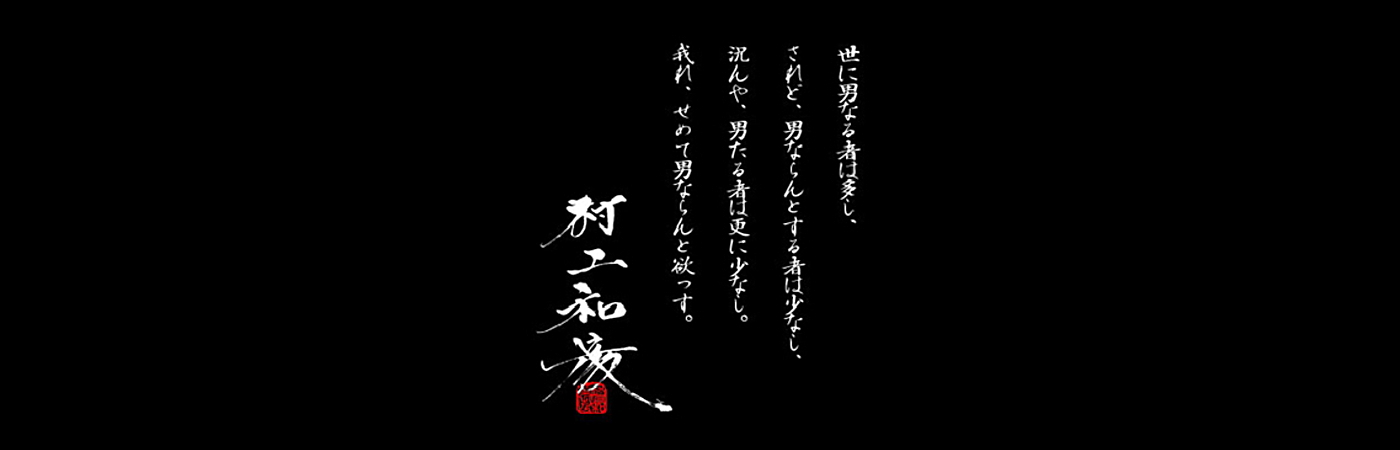 世に男なる者は多し、
されど、男ならんとする者は少なし、
況んや、男たる者は更に少なし。
我れ、せめて男ならんと欲っす。
村上和